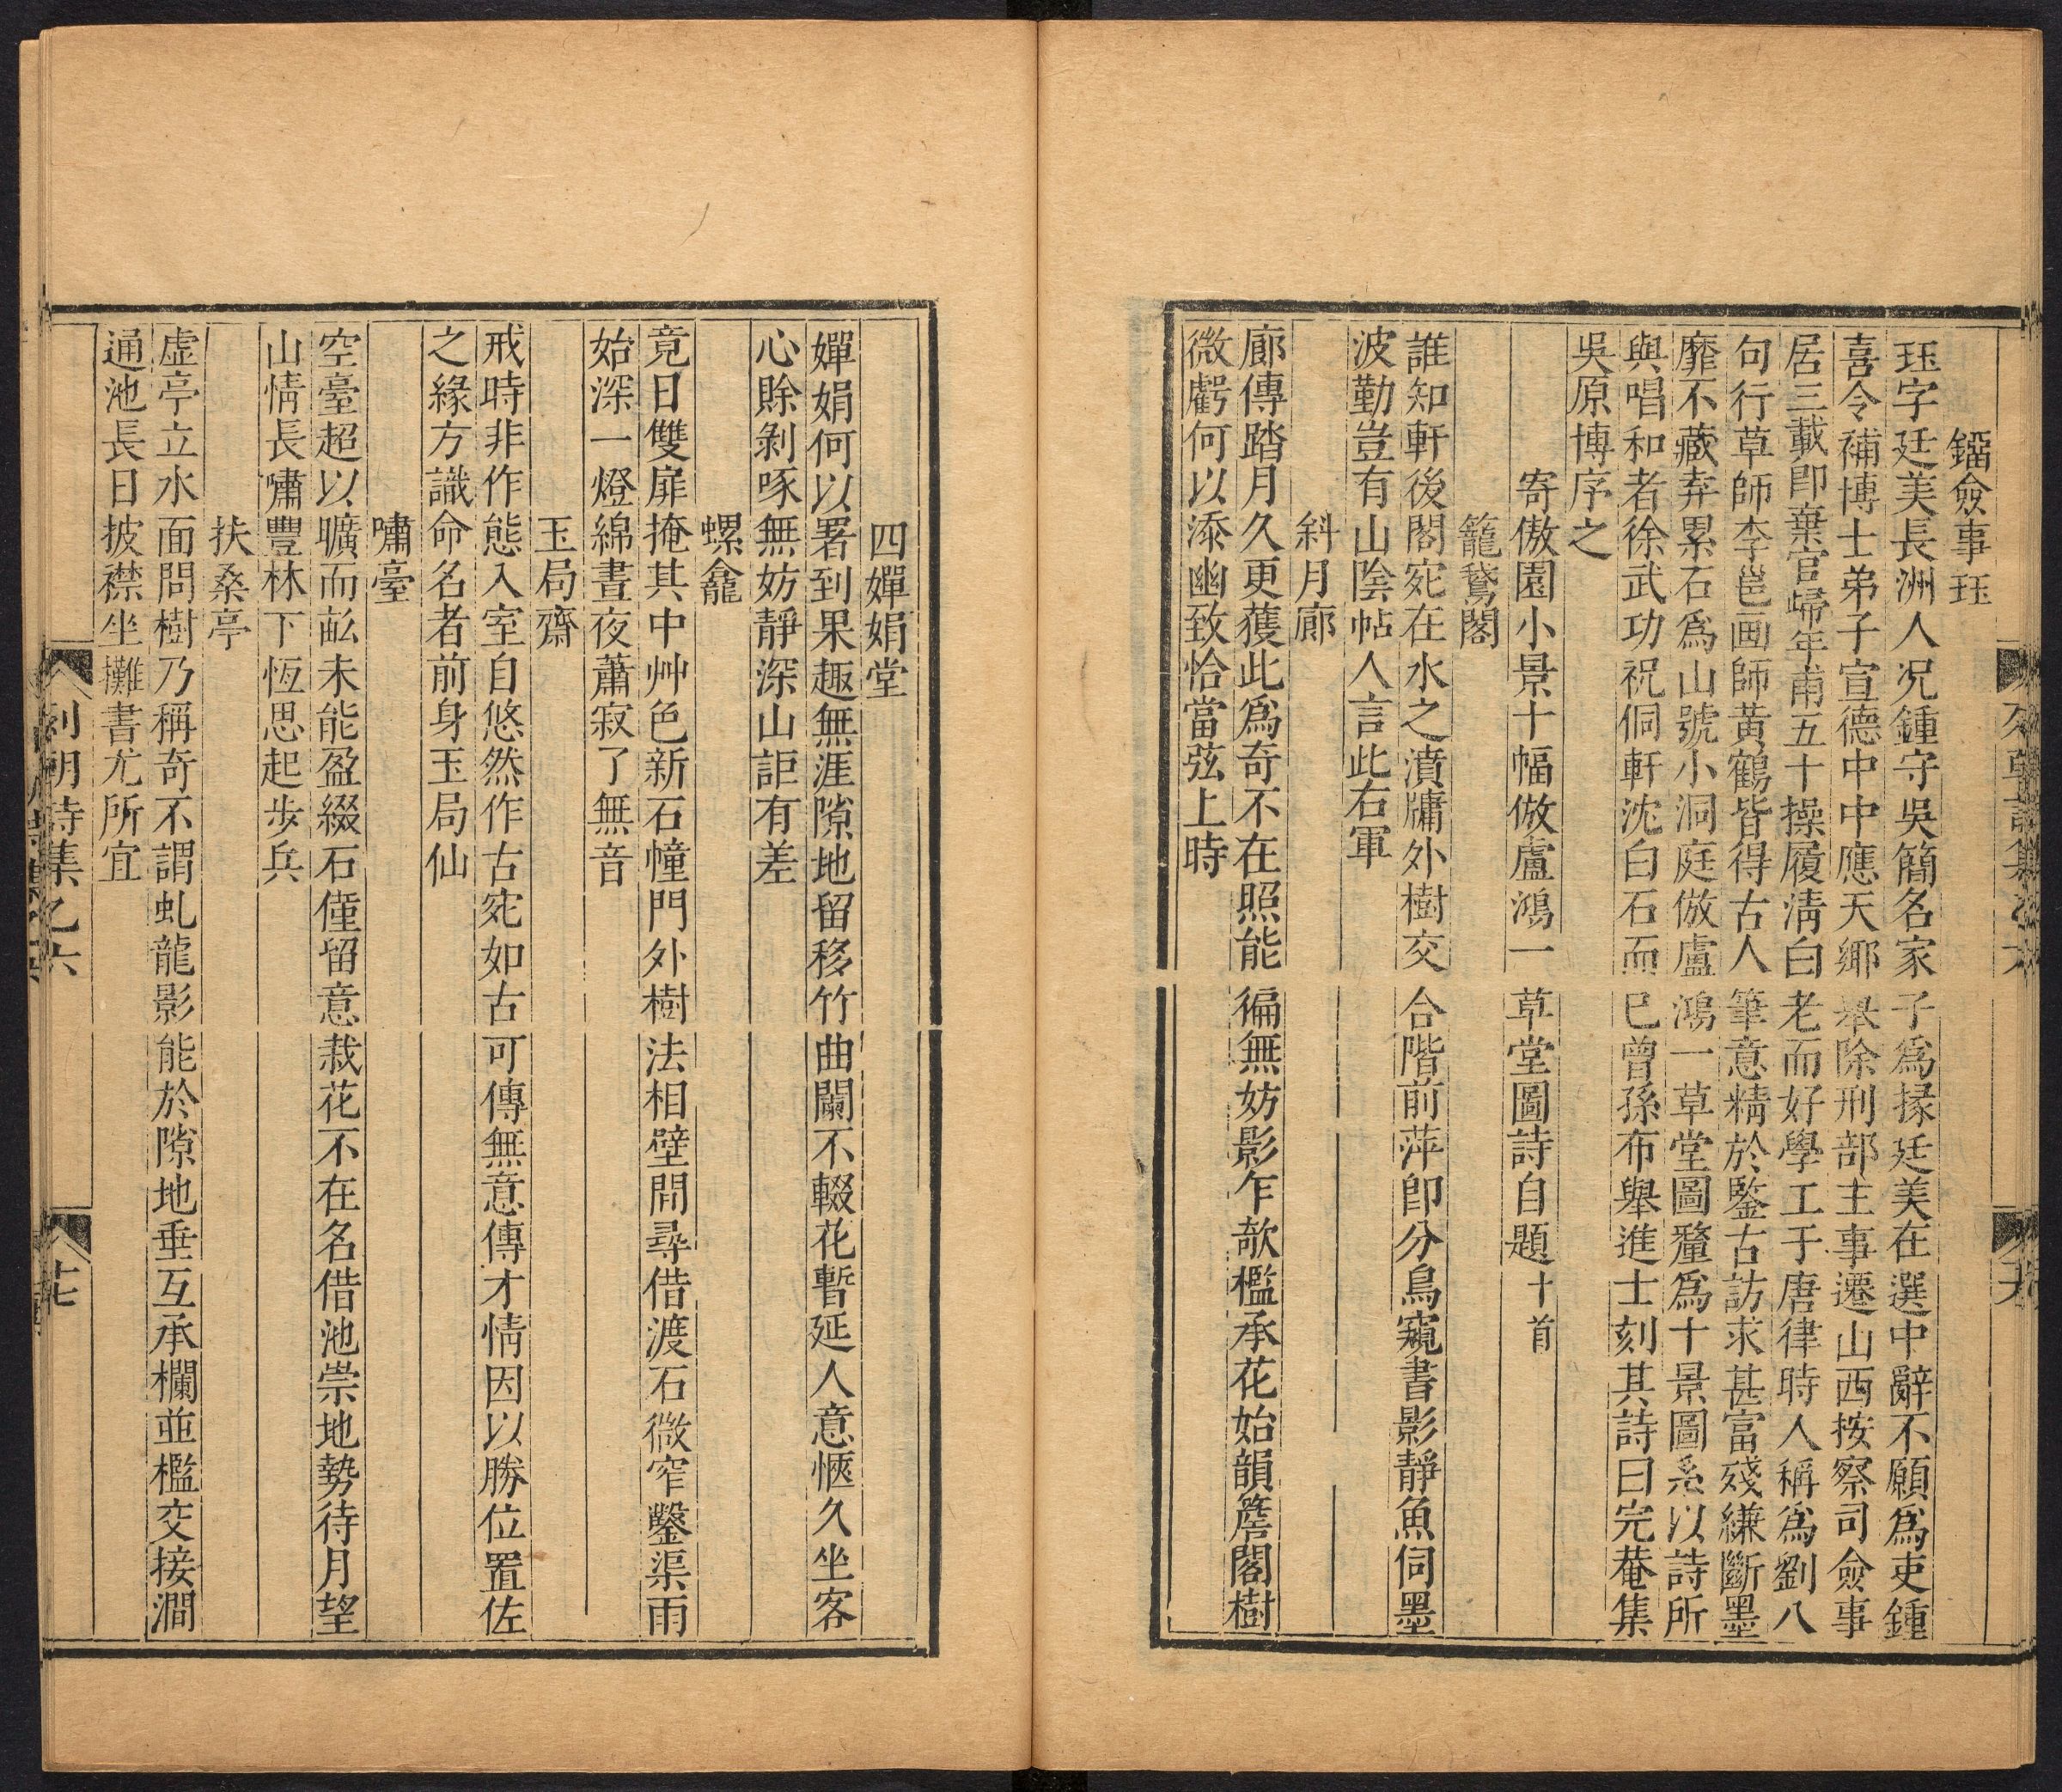 鎦僉事珏
珏字廷美長洲人况鍾守吳簡名家子爲掾廷美在選中辭不願爲吏鍾
喜令補博士弟子宣德中中應天鄉舉除刑部主事遷山西按察司僉事
居三載卽棄官歸年甫五十操履淸白老而好學工于唐律時人稱爲劉八
句行草師李邕画師黃鶴皆得古人筆意精於鑒古訪求甚富殘縑斷墨
靡不藏弆累石爲山號小洞庭倣盧鴻一草堂圖釐爲十景圖系以詩所
與唱和者徐武功祝侗軒沈白石而已曾孫布舉進士刻其詩曰完菴集
吳原博序之
寄傲園小景十幅倣盧鴻一草堂圖詩自題十首
籠鵞閣
誰知軒後閣宛在水之濆牖外樹交合階前萍卽分鳥窺書影靜魚伺墨
波勤豈有山陰帖人言此右軍
斜月廊
廊傳踏月久更獲此爲奇不在照能徧無妨影乍欹檻承花始韻簷閣樹
微虧何以添幽致恰當弦上時
四嬋娟堂
嬋娟何以署到果趣無涯隙地留移竹曲闌不輟花暫延人意愜久坐客
心賖剝啄無妨靜深山詎有差
螺龕
竟日雙扉掩其中艸色新石幢門外樹法相壁閒尋借渡石微窄鑿渠雨
始深一燈綿晝夜蕭寂了無音
玉局齋
戒時非作態入室自悠然作古宛如古可傳無意傳才情因以勝位置佐
之緣方識命名者前身玉局仙
嘯臺
空臺超以曠而畝未能盈綴石僅留意栽花不在名借池崇地勢待月望
山情長嘯豐林下恆思起步兵
扶桑亭
虛亭立水面問樹乃稱奇不謂虬龍影能於隙地垂互承欄並檻交接澗
通池長日披襟坐攤書尤所宜
列朝詩集乙六
十七